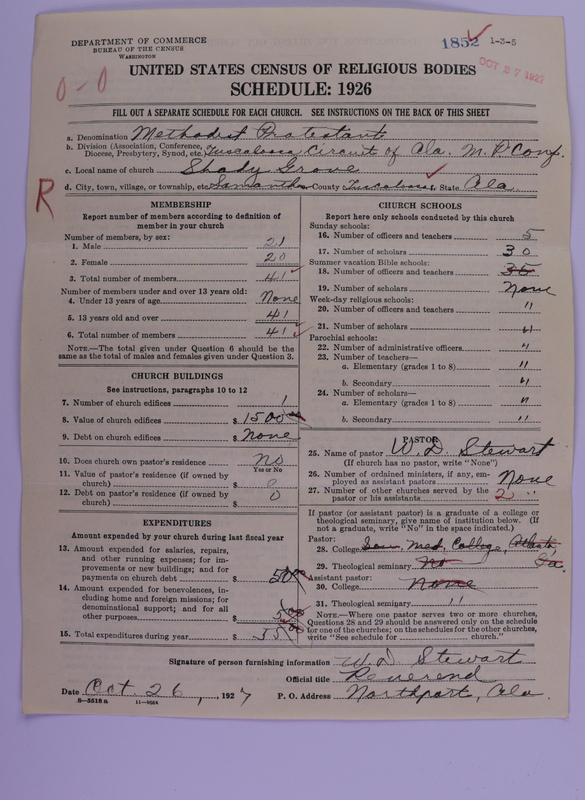 DEPARTMENT OF COMMERCE
BUREAU OF THE CENSUS
WASHINGTON
1852 1-3-5
OCT 27 1927
0-0
UNITED STATES CENSUS OF RELIGIOUS BODIES
SCHEDULE: 1926
FILL OUT A SEPARATE SCHEDULE FOR EACH CHURCH. SEE INSTRUCTIONS ON THE BACK OF THIS SHEET
a. Denomination Methodist Protestant
b. Division (Association, Conference, Diocese, Presbytery, Synod, etc. Tuscaloosa Circuit of Ala. M. P. Conf.
c. Local name of church Shady Grove
d. City, town, village, or township, etc. Samantha County Tuscaloosa State Ala
R
MEMBERSHIP
Report number of members according to definition of member in your church
Number of members, by sex:
1. Male 21
2. Female 20
3. Total number of members 41
Number of members under and over 13 years old:
4. Under 13 years of age None
5. 13 years old and over 41
6. Total number of members 41
NOTE.—The total given under Question 6 should be the same as the total of males and females given under Question 3.
CHURCH BUILDINGS
See instructions, paragraphs 10 to 12
7. Number of church edifices 1
8. Value of church edifices $ 1500
9. Debt on church edifices $ None
10. Does church own pastor's residence No
Yes or No
11. Value of pastor's residence (if owned by church) $ 0
12. Debt on pastor's residence (if owned by church) $ 0
EXPENDITURES
Amount expended by your church during last fiscal year
13. Amount expended for salaries, repairs, and other running expenses; for improvements or new buildings; and for payments on church debt $ 50
14. Amount expended for benevolences, including home and foreign missions; for denominational support; and for all other purposes $ 5
15. Total expenditures during year $ 55
CHURCH SCHOOLS
Report here only schools conducted by this church
Sunday schools:
16. Number of officers and teachers 5
17. Number of scholars 30
Summer vacation Bible schools:
18. Number of officers and teachers 35
19. Number of scholars None
Week-day religious schools:
20. Number of officers and teachers "
21. Number of scholars "
Parochial schools:
22. Number of administrative officers "
23. Number of teachers—
a. Elementary (grades 1 to 8) "
b. Secondary "
24. Number of scholars—
a. Elementary (grades 1 to 8) "
b. Secondary "
PASTOR
25. Name of pastor W. D. Stewart
(If church has no pastor, write "None")
26. Number of ordained ministers, if any, employed as assistant pastors None
27. Number of other churches served by the pastor or his assistants 2 "
If pastor (or assistant pastor) is a graduate of a college or theological seminary, give name of institution below. (If not a graduate, write "No" in the space indicated.)
Pastor:
28. College Sou. Med. College, Atlanta, Ga.
29. Theological seminary No
Assistant pastor:
30. College None
31. Theological seminary "
NOTE.—Where one pastor serves two or more churches, Questions 28 and 29 should be answered only on the schedule for one of the churches; on the schedules for the other churches, write "See schedule for church."
Signature of person furnishing information W. D Stewart
Official title Reverend
Date Oct. 26, 1927 P. O. Address Northport, Ala.
8—5518 a 11—9584